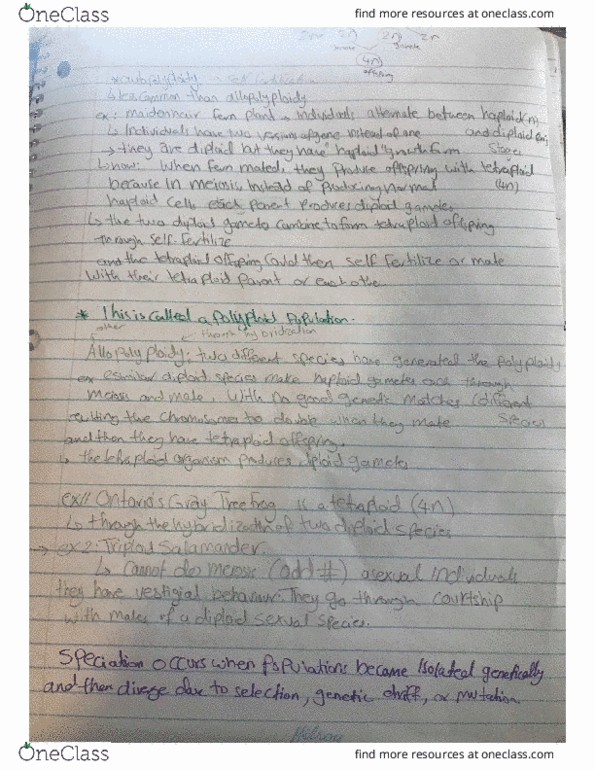 OneClass
find more resources at oneclass.com
2n 2n 2n
gamete gamete
(4n)
offspring
*autopolyploidy →
↳ less common than allopolyploidy
ex: maidenhair fern plant → individuals alternate between haploid(n)
↳ Individuals have two versions of gene instead of one and diploid
→ they are diploid but they have "haploid" growth form stages
↳ how: When fern mated, they produce offspring with tetraploid
because in meiosis, instead of producing normal (4n)
haploid cells each parent produces diploid gametes
↳ the two diploid gametes combine to form tetraploid offspring
through self-fertilize
and the tetraploid offspring could then self fertilize or mate
with their tetraploid parent or each other
* This is called a polyploid population.
other through hybridization
Allopolyploidy: two different species have generated the polyploidy
ex similar diploid species make haploid gametes each through
meiosis and mate, with no good genetic matches (different
the chromosomes to double when they mate species
and then they have tetraploid offspring.
↳ the tetraploid organism produces diploid gametes
ex1: Ontario's Gray Tree frog is a tetraploid (4n)
↳ through the hybridization of two diploid species
→ ex2: Triploid Salamander.
↳ Cannot do meiosis (odd #) asexual individuals
they have vestigial behaviour. They go through courtship
with males of a diploid sexual species.
Speciation occurs when populations became isolated genetically
and then diverge due to selection, genetic drift, or mutation.
OneClass
find more resources at oneclass.com